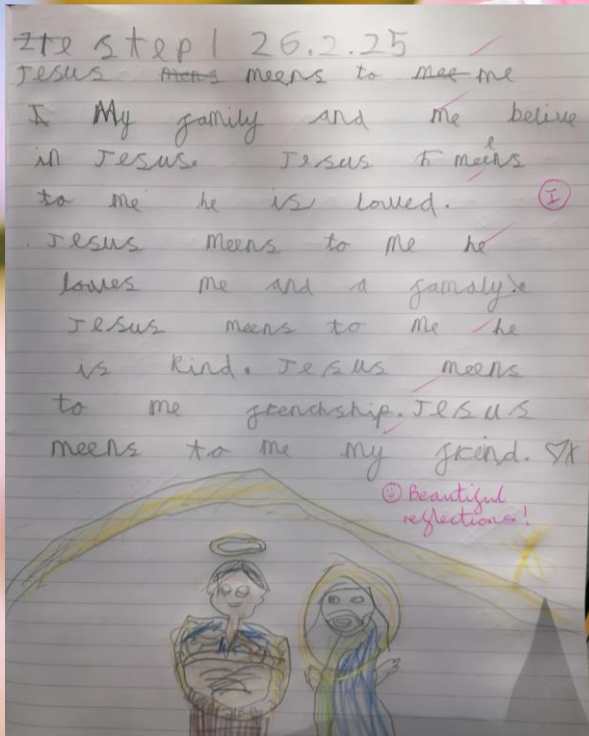 step 1 26.2.25
Jesus mens meens to mee me
I My family and me belive
in Jesus. Jesus to meens
to me he is loved.
I
Jesus meens to me he
loves me and a famaly.
Jesus meens to me he
is kind. Jesus meens
to me frendship. Jesus
meens to me my frind.
Beautiful
reflections!